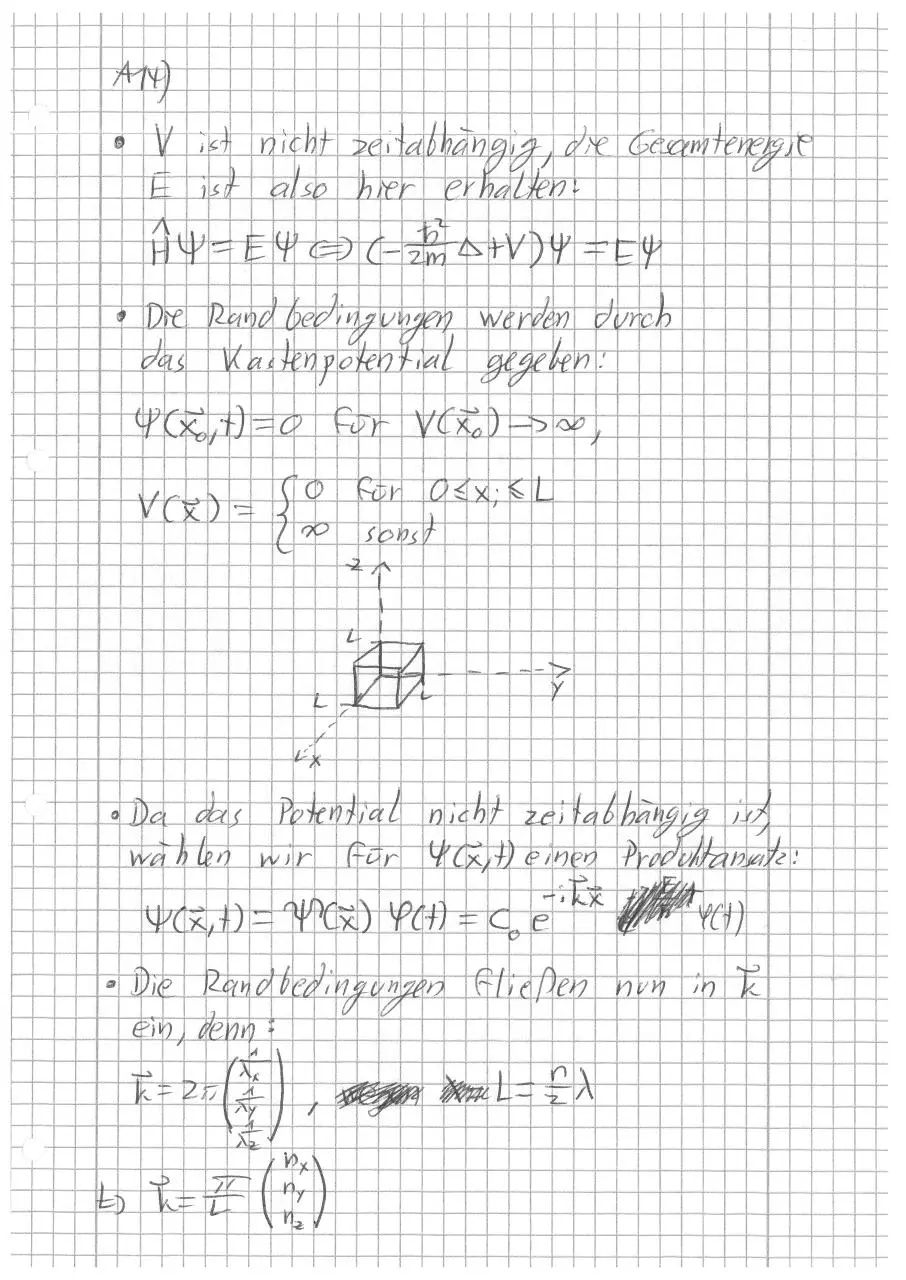 A14)
• V ist nicht zeitabhängig, die Gesamtenergie
E ist also hier erhalten:
ĤΨ = EΨ ⇔ (-ħ²/2m Δ + V)Ψ = EΨ
• Die Randbedingungen werden durch
das Kastenpotential gegeben:
Ψ(x⃗₀,t) = 0 für V(x⃗₀) → ∞,
V(x⃗) = { 0 für 0 ≤ xᵢ ≤ L
∞ sonst
z
L
y
L
L
x
• Da das Potential nicht zeitabhängig ist,
wählen wir für Ψ(x⃗,t) einen Produktansatz:
Ψ(x⃗,t) = Ψ(x⃗) φ(t) = C₀ e^(-i k⃗x⃗) φ(t)
• Die Randbedingungen fließen nun in k⃗
ein, denn:
k⃗ = 2π (1/λₓ 1/λ_y 1/λ_z), L = n/2 λ
↳ k⃗ = π/L (nₓ n_y n_z)